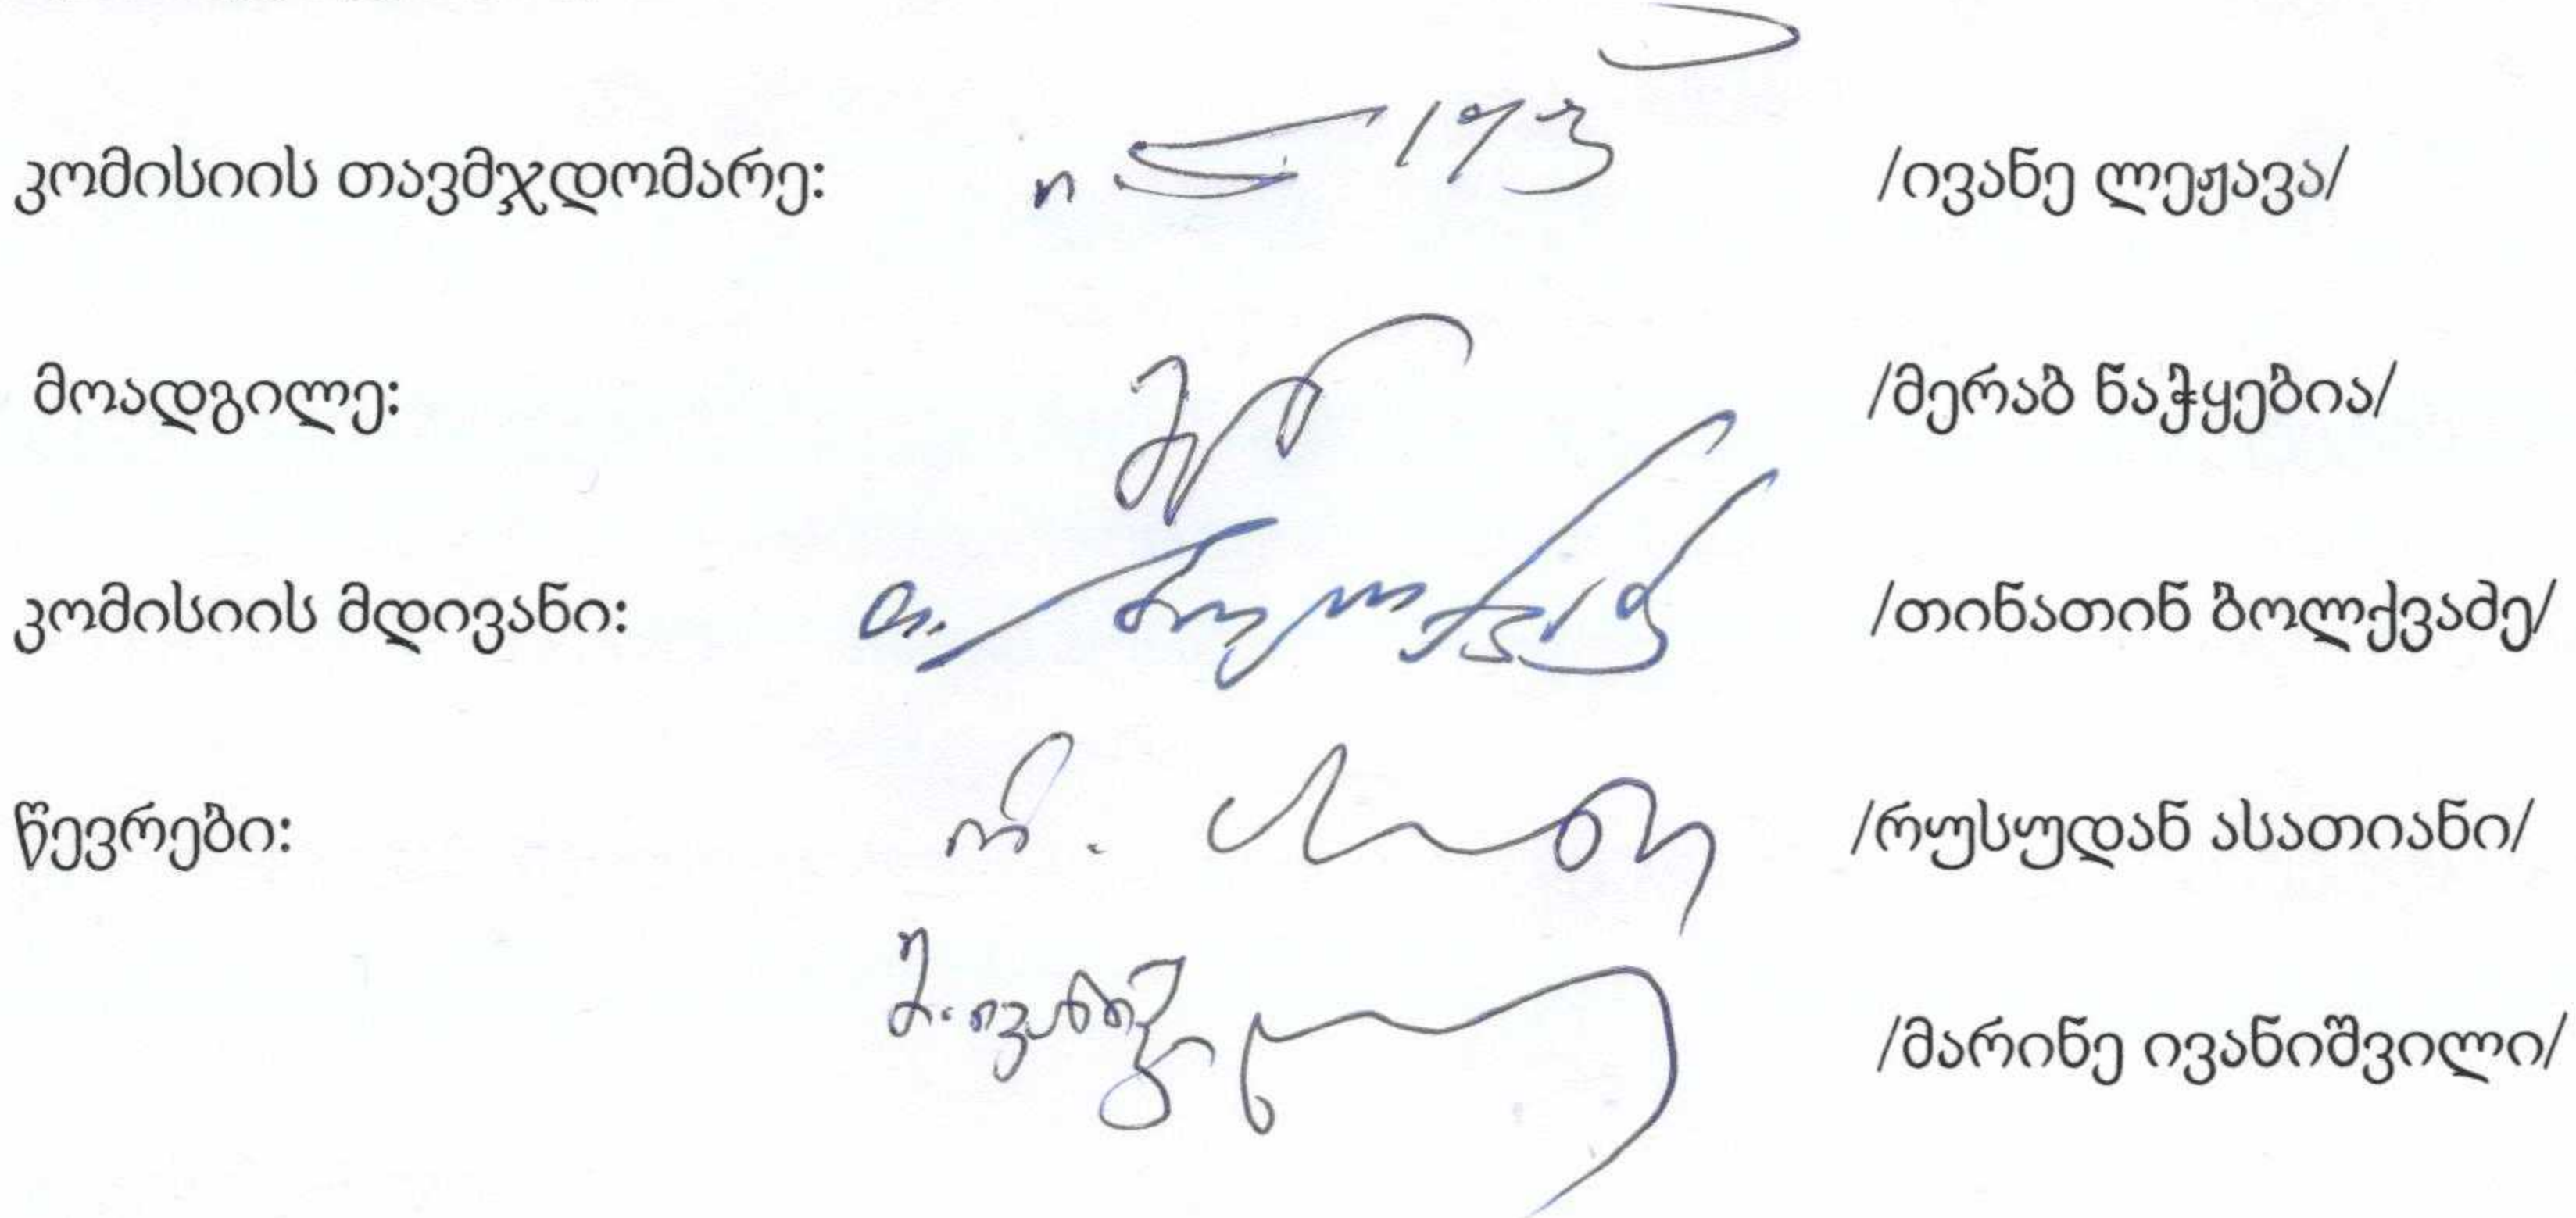 კომისიის თავმჯდომარე: /ივანე ლეჟავა/
მოადგილე: /მერაბ ნაჭყებია/
კომისიის მდივანი: თ. /თინათინ ბოლქვაძე/
წევრები: რ. /რუსუდან ასათიანი/
მ. /მარინე ივანიშვილი/